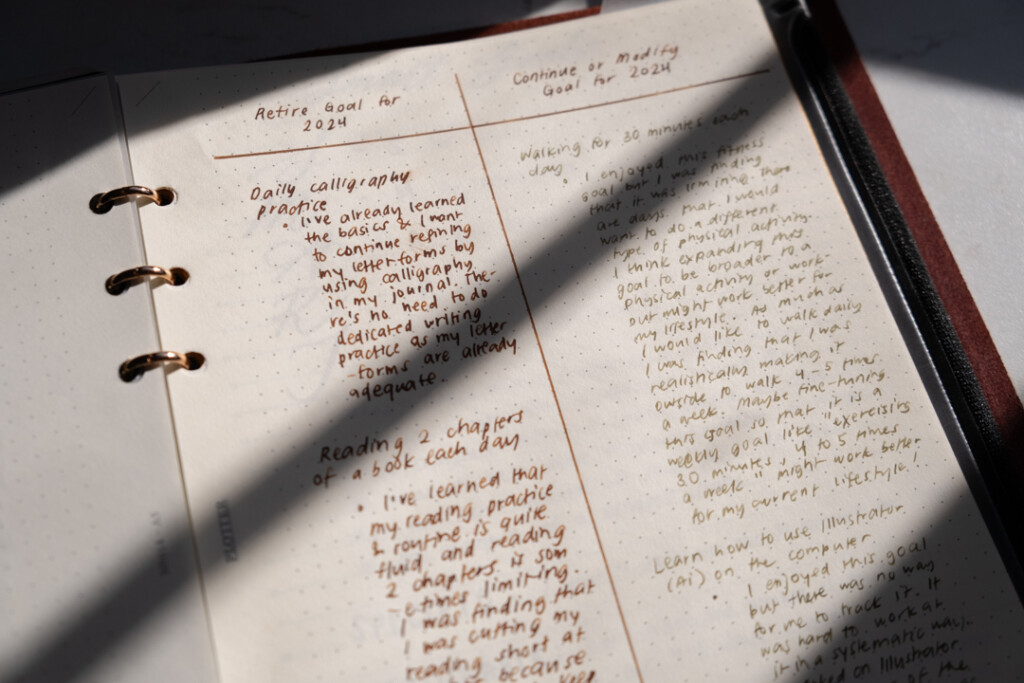 Retire Goal for
2024
Daily calligraphy
practice
• I've already learned
the basics & I want
to continue refining
my letterforms by
using calligraphy
in my journal. The-
re's no need to do
dedicated writing
practice as my letter
-forms are already
adequate.
Reading 2 chapters
of a book each day
• I've learned that
my reading practice
& routine is quite
fluid and reading
2 chapters is som
-etimes limiting.
I was finding that
I was cutting my
reading short at
because
keep
Continue or Modify
Goal for 2024
Walking for 30 minutes each
day
• I enjoyed this fitness
goal but I was finding
that it was limiting. There
are days that I would
want to do a different
type of physical activity.
I think expanding this
goal to be broader to a
physical activity or work-
out might work better for
my lifestyle. As much as
I would like to walk daily
I was finding that I was
realistically making it
outside to walk 4-5 times
a week. Maybe fine-tuning
this goal so that it is a
weekly goal like "exercising
30 minutes, 4 to 5 times
a week" might work better
for my current lifestyle!
Learn how to use Illustrator
(Ai) on the computer
• I enjoyed this goal
but there was no way
for me to track it. It
was hard to work at
it in a systematic way.
on Illustrator.
of the